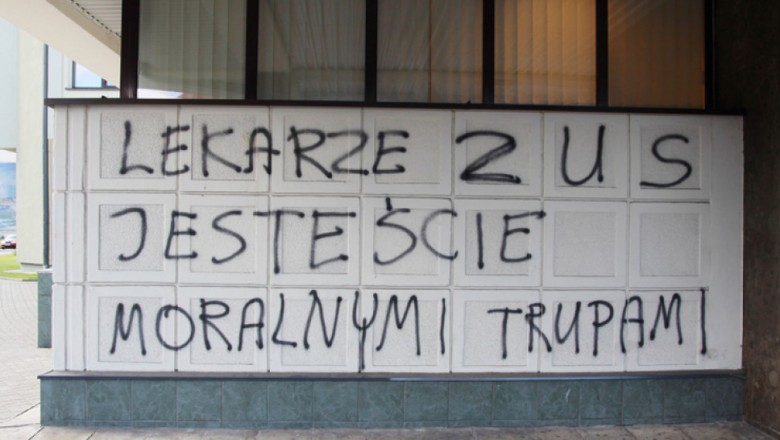 LEKARZE ZUS
JESTEŚCIE
MORALNYMI TRUPAMI